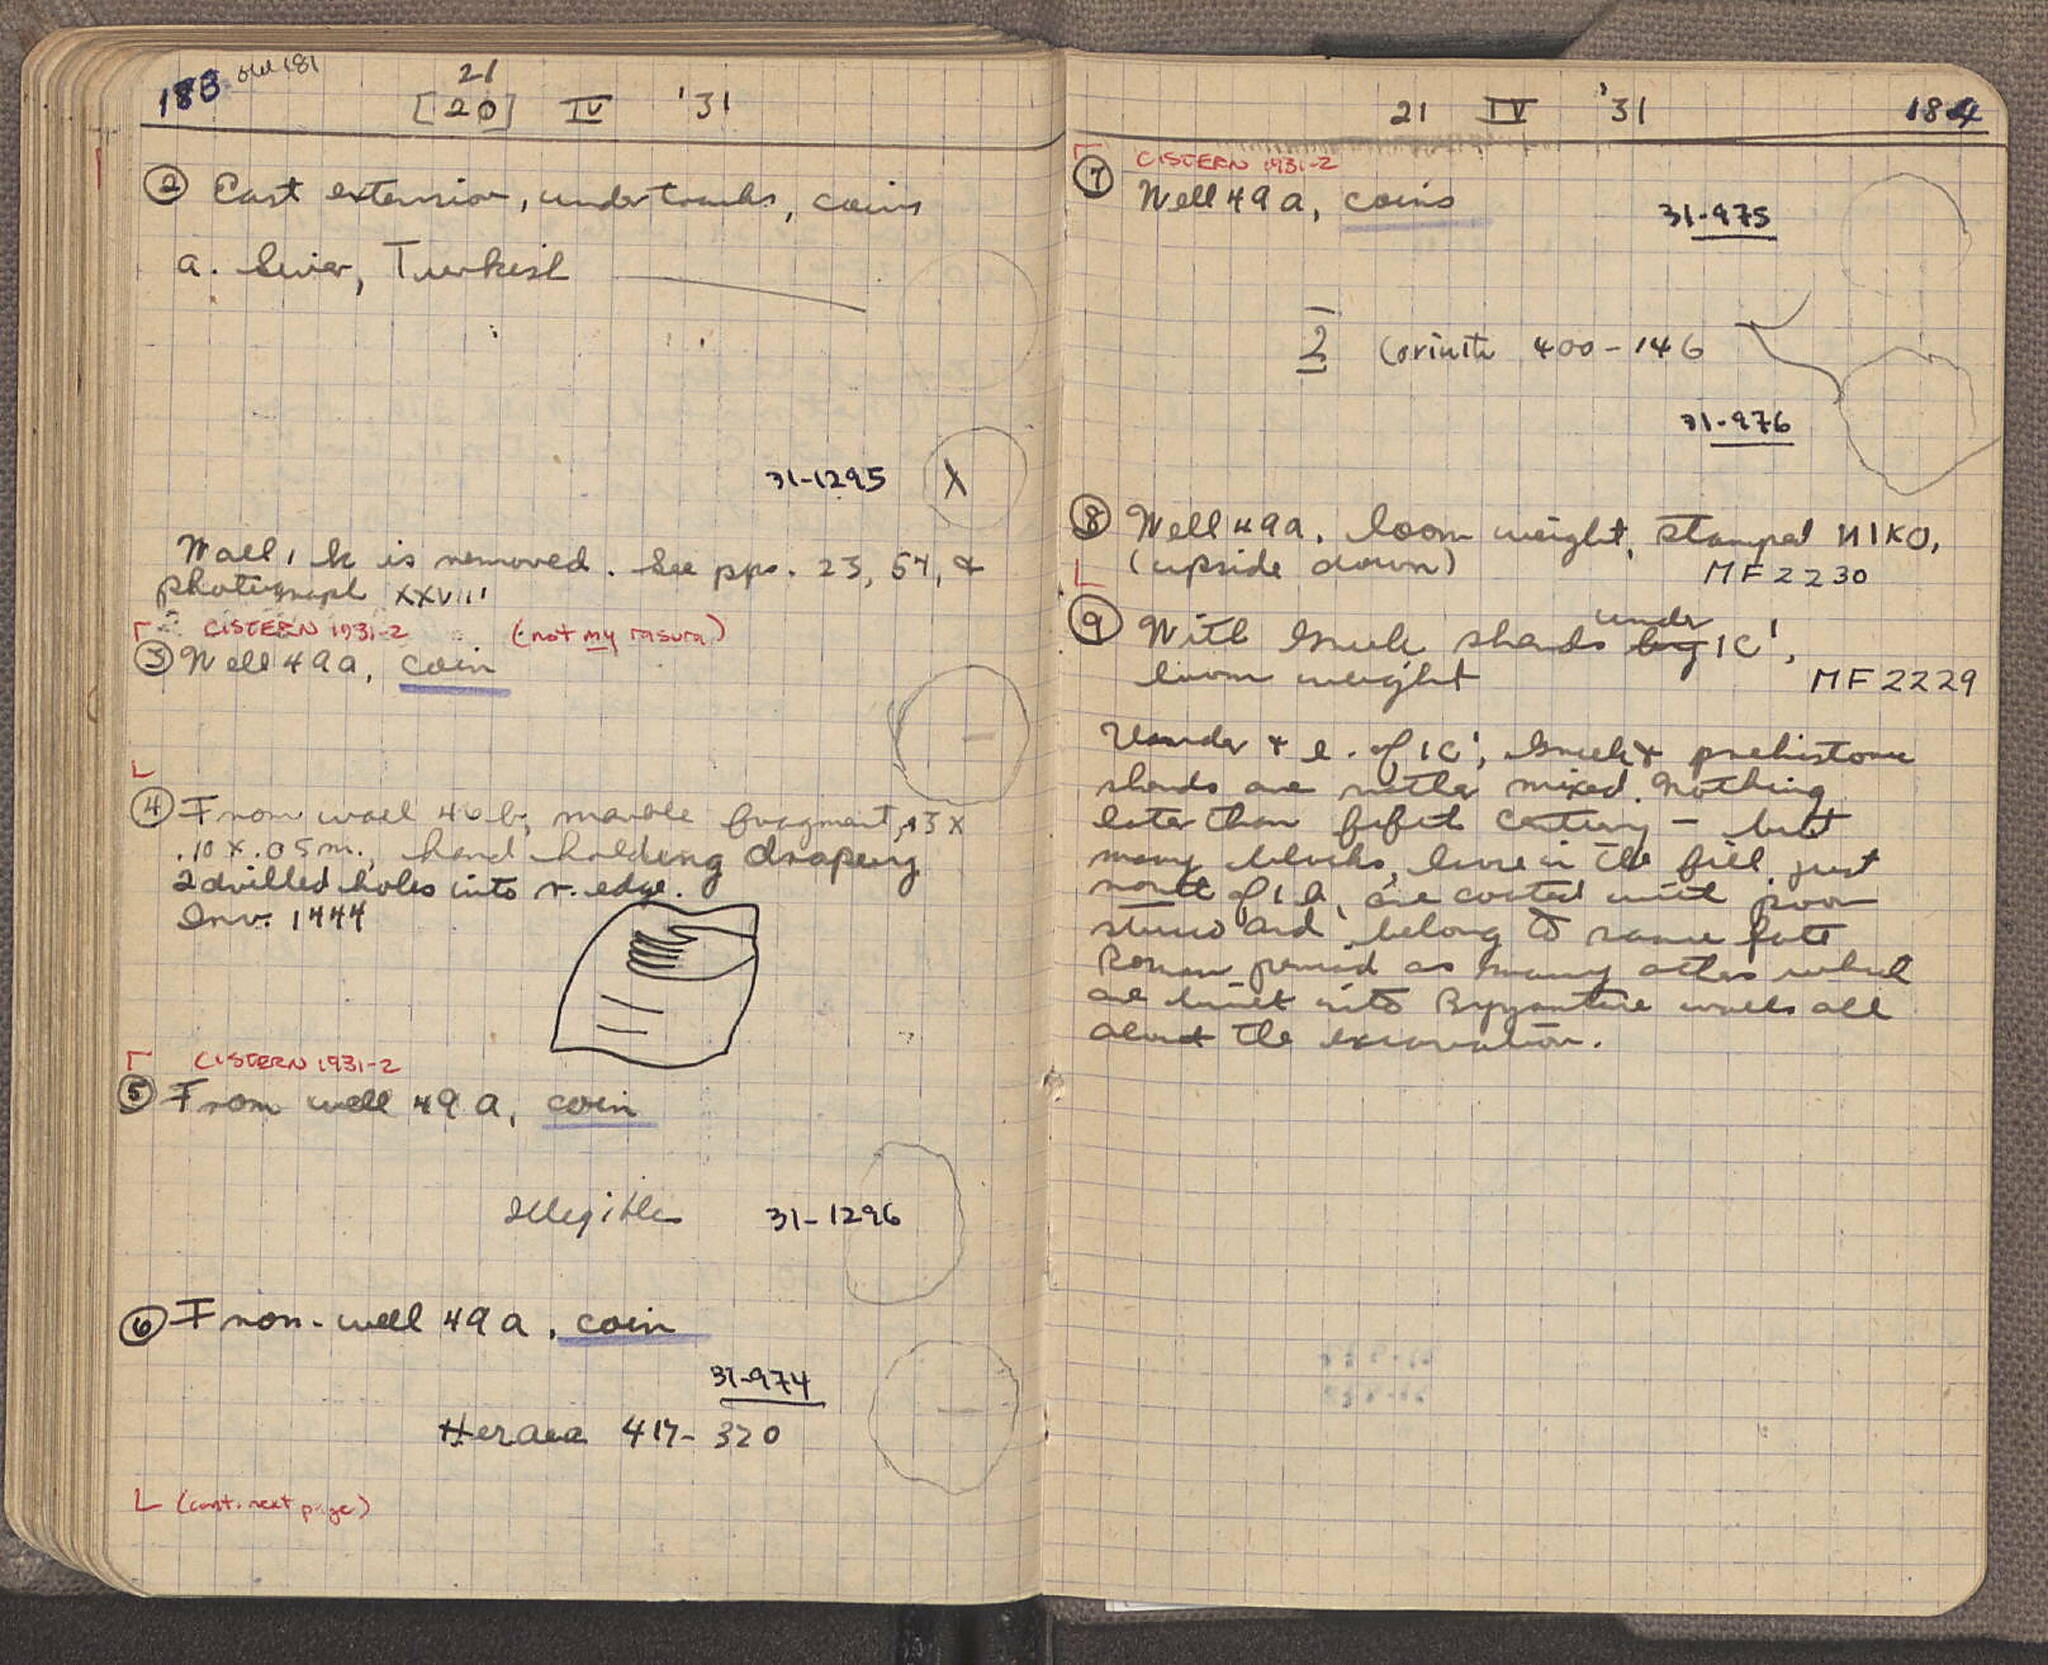 183 old 181
21
[20] IV '31
② East extension, under tracks, coins
a. Silver, Turkish
31-1295 X
Wall 1 k is removed. See pps. 23, 54, &
photograph XXVIII
CISTERN 1931-2 (not my rasura)
③ Well 49a, coin
④ From well 46b, marble fragment, .13 x
.10 x .05 m., hand holding drapery
2 drilled holes into r. edge.
Inv. 1444
CISTERN 1931-2
⑤ From well 49a, coin
Illegible 31-1296
⑥ From well 49a, coin
31-974
Heraea 417-370
(cont. next page)
21 IV '31 184
CISTERN 1931-2
⑦ Well 49a, coins
31-975
2 Corinth 400-146
31-976
⑧ Well 49a, loom weight, stamped NIKO,
(upside down) MF 2230
under
⑨ With Greek sherds by 1C',
loom weight MF 2229
Under & e. of 1C', Greek & prehistoric
sherds are rather mixed. Nothing
later than fifth century – but
many blocks, here in the fill just
north of 1 h, are coated with poor
stucco and belong to same late
Roman period as many others which
are built into Byzantine walls all
about the excavation.